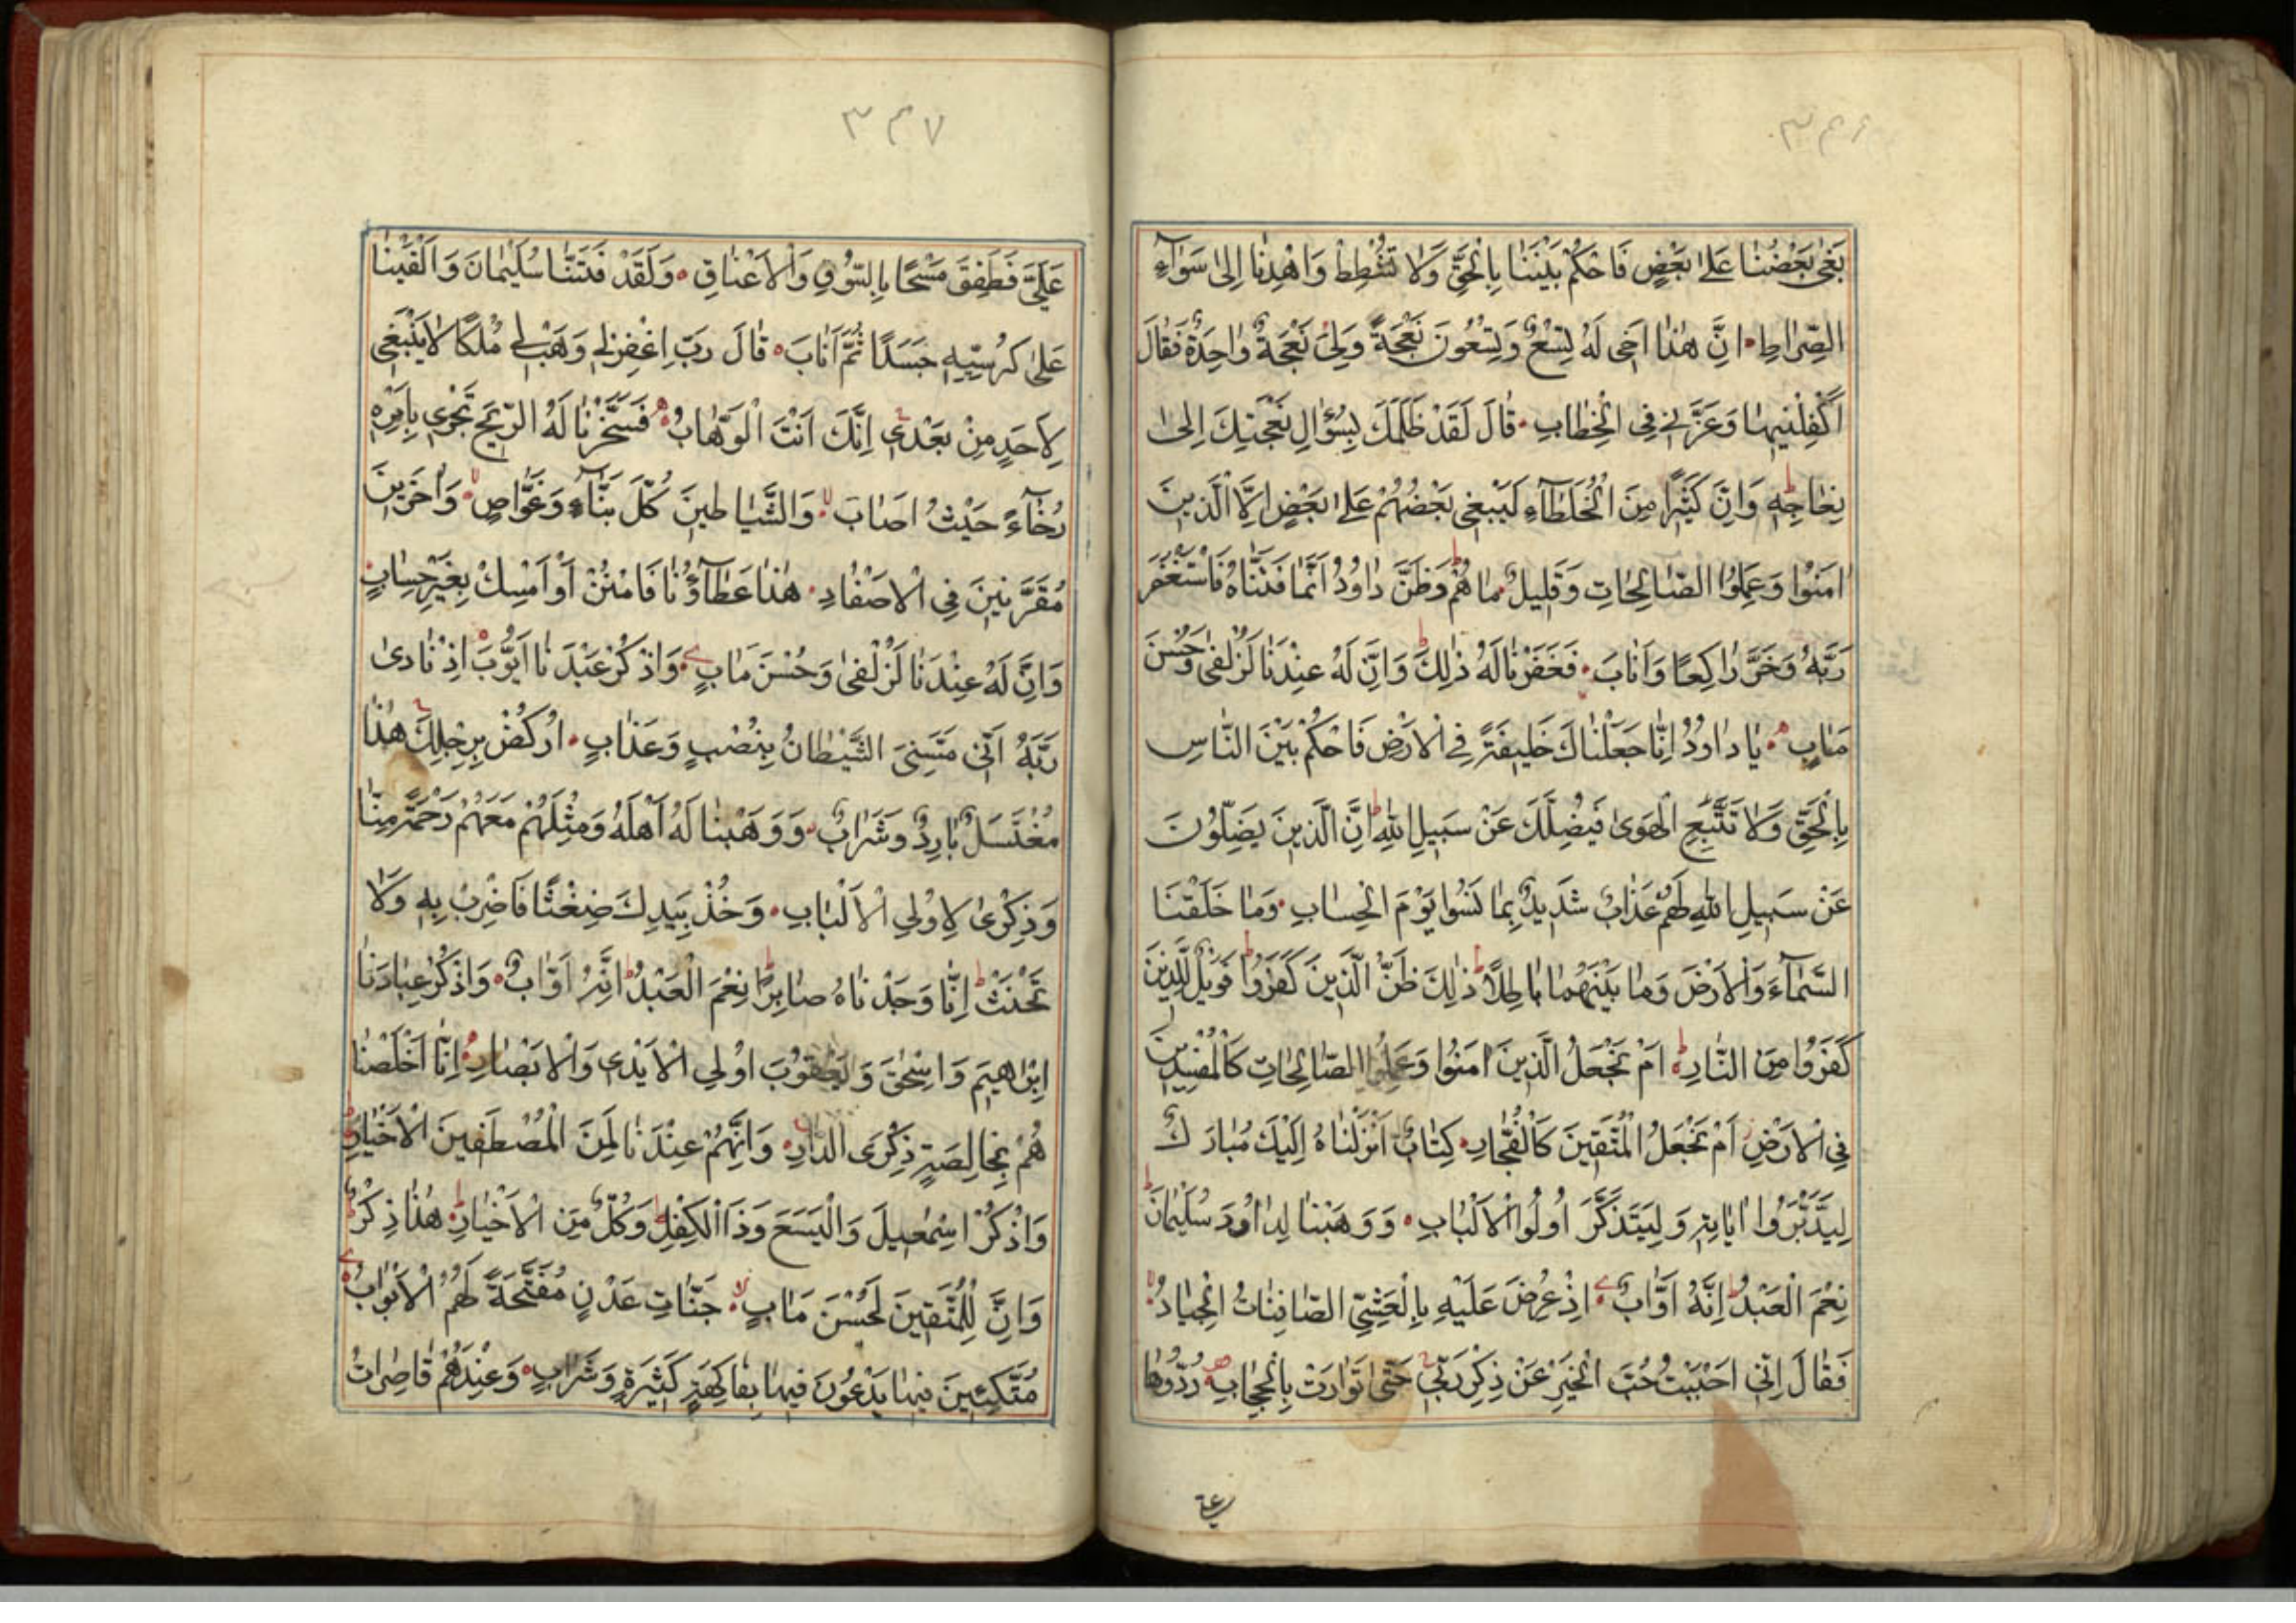 ٣٤٦
بَغىٰ بَعْضُنٰا عَلىٰ بَعْضٍ فَاحْكُمْ بَيْنَنٰا بِالْحَقِّ وَلٰا تُشْطِطْ وَاهْدِنٰا اِلىٰ سَوٰآءِ
الصِّرٰاطِ اِنَّ هٰذٰا اَخى لَهُ تِسْعٌ وَتِسْعُونَ نَعْجَةً وَلِىَ نَعْجَةٌ وٰاحِدَةٌ فَقٰالَ
اَكْفِلْنيهٰا وَعَزَّنى فِى الْخِطٰابِ قٰالَ لَقَدْ ظَلَمَكَ بِسُؤٰالِ نَعْجَتِكَ اِلىٰ
نِعٰاجِهِ وَاِنَّ كَثيرًا مِنَ الْخُلَطٰآءِ لَيَبْغى بَعْضُهُمْ عَلىٰ بَعْضٍ اِلَّا الَّذينَ
اٰمَنُوا وَعَمِلُوا الصّٰالِحٰاتِ وَقَليلٌ مٰا هُمْ وَظَنَّ دٰاوُدُ اَنَّمٰا فَتَنّٰاهُ فَاسْتَغْفَرَ
رَبَّهُ وَخَرَّ رٰاكِعًا وَاَنٰابَ فَغَفَرْنٰا لَهُ ذٰلِكَ وَاِنَّ لَهُ عِنْدَنٰا لَزُلْفىٰ وَحُسْنَ
مَاٰبٍ يٰا دٰاوُدُ اِنّٰا جَعَلْنٰاكَ خَليفَةً فِى الْاَرْضِ فَاحْكُمْ بَيْنَ النّٰاسِ
بِالْحَقِّ وَلٰا تَتَّبِعِ الْهَوىٰ فَيُضِلَّكَ عَنْ سَبيلِ اللهِ اِنَّ الَّذينَ يَضِلُّونَ
عَنْ سَبيلِ اللهِ لَهُمْ عَذٰابٌ شَديدٌ بِمٰا نَسُوا يَوْمَ الْحِسٰابِ وَمٰا خَلَقْنَا
السَّمٰآءَ وَالْاَرْضَ وَمٰا بَيْنَهُمٰا بٰاطِلًا ذٰلِكَ ظَنُّ الَّذينَ كَفَرُوا فَوَيْلٌ لِلَّذينَ
كَفَرُوا مِنَ النّٰارِ اَمْ نَجْعَلُ الَّذينَ اٰمَنُوا وَعَمِلُوا الصّٰالِحٰاتِ كَالْمُفْسِدينَ
فِى الْاَرْضِ اَمْ نَجْعَلُ الْمُتَّقينَ كَالْفُجّٰارِ كِتٰابٌ اَنْزَلْنٰاهُ اِلَيْكَ مُبٰارَكٌ
لِيَدَّبَّرُوا اٰيٰاتِهِ وَلِيَتَذَكَّرَ اُولُوا الْاَلْبٰابِ وَوَهَبْنٰا لِدٰاوُدَ سُلَيْمٰانَ
نِعْمَ الْعَبْدُ اِنَّهُ اَوّٰابٌ اِذْ عُرِضَ عَلَيْهِ بِالْعَشِىِّ الصّٰافِنٰاتُ الْجِيٰادُ
فَقٰالَ اِنّى اَحْبَبْتُ حُبَّ الْخَيْرِ عَنْ ذِكْرِ رَبّى حَتّىٰ تَوٰارَتْ بِالْحِجٰابِ رُدُّوهٰا
٣٤٧
عَلَىَّ فَطَفِقَ مَسْحًا بِالسُّوقِ وَالْاَعْنٰاقِ وَلَقَدْ فَتَنّٰا سُلَيْمٰانَ وَاَلْقَيْنٰا
عَلىٰ كُرْسِيِّهِ جَسَدًا ثُمَّ اَنٰابَ قٰالَ رَبِّ اغْفِرْلى وَهَبْ لى مُلْكًا لٰا يَنْبَغى
لِاَحَدٍ مِنْ بَعْدى اِنَّكَ اَنْتَ الْوَهّٰابُ فَسَخَّرْنٰا لَهُ الرّيحَ تَجْرى بِاَمْرِهِ
رُخٰآءً حَيْثُ اَصٰابَ وَالشَّيٰاطينَ كُلَّ بَنّٰآءٍ وَغَوّٰاصٍ وَاٰخَرينَ
مُقَرَّنينَ فِى الْاَصْفٰادِ هٰذٰا عَطٰآؤُنٰا فَامْنُنْ اَوْ اَمْسِكْ بِغَيْرِ حِسٰابٍ
وَاِنَّ لَهُ عِنْدَنٰا لَزُلْفىٰ وَحُسْنَ مَاٰبٍ وَاذْكُرْ عَبْدَنٰا اَيُّوبَ اِذْ نٰادىٰ
رَبَّهُ اَنّى مَسَّنِىَ الشَّيْطٰانُ بِنُصْبٍ وَعَذٰابٍ اُرْكُضْ بِرِجْلِكَ هٰذٰا
مُغْتَسَلٌ بٰارِدٌ وَشَرٰابٌ وَوَهَبْنٰا لَهُ اَهْلَهُ وَمِثْلَهُمْ مَعَهُمْ رَحْمَةً مِنّٰا
وَذِكْرىٰ لِاُولِى الْاَلْبٰابِ وَخُذْ بِيَدِكَ ضِغْثًا فَاضْرِبْ بِهِ وَلٰا
تَحْنَثْ اِنّٰا وَجَدْنٰاهُ صٰابِرًا نِعْمَ الْعَبْدُ اِنَّهُ اَوّٰابٌ وَاذْكُرْ عِبٰادَنٰا
اِبْرٰاهيمَ وَاِسْحٰقَ وَيَعْقُوبَ اُولِى الْاَيْدى وَالْاَبْصٰارِ اِنّٰا اَخْلَصْنٰا
هُمْ بِخٰالِصَةٍ ذِكْرَى الدّٰارِ وَاِنَّهُمْ عِنْدَنٰا لَمِنَ الْمُصْطَفَيْنَ الْاَخْيٰارِ
وَاذْكُرْ اِسْمٰعيلَ وَالْيَسَعَ وَذَا الْكِفْلِ وَكُلٌّ مِنَ الْاَخْيٰارِ هٰذٰا ذِكْرٌ
وَاِنَّ لِلْمُتَّقينَ لَحُسْنَ مَاٰبٍ جَنّٰاتِ عَدْنٍ مُفَتَّحَةً لَهُمُ الْاَبْوٰابُ
مُتَّكِئينَ فيهٰا يَدْعُونَ فيهٰا بِفٰاكِهَةٍ كَثيرَةٍ وَشَرٰابٍ وَعِنْدَهُمْ قٰاصِرٰاتُ